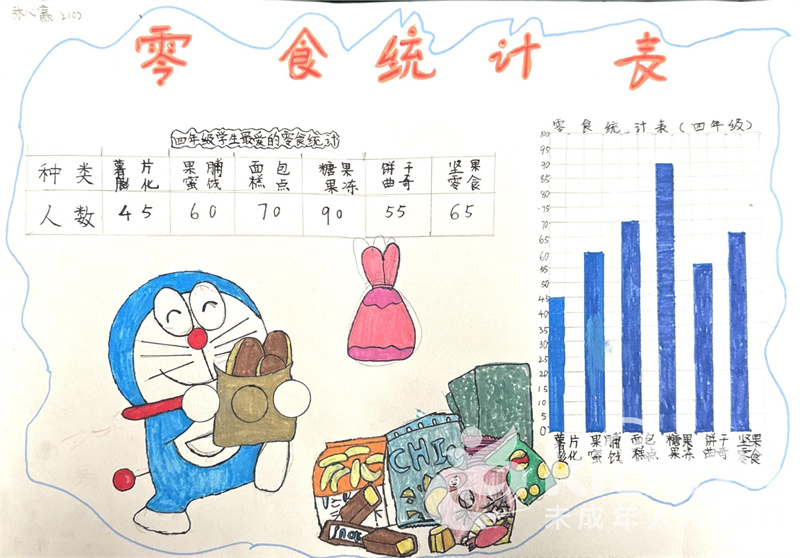 零食统计表
四年级学生最爱的零食统计
种类 薯片膨化 果脯蜜饯 面包糕点 糖果果冻 饼干曲奇 坚果零食
人数 45 60 70 90 55 65
零食统计表(四年级)
100
95
90
85
80
75
70
65
60
55
50
45
40
35
30
25
20
15
10
5
0
薯片 果脯 面包 糖果 饼干 坚果
膨化 蜜饯 糕点 果冻 曲奇 零食
CHI
未成年